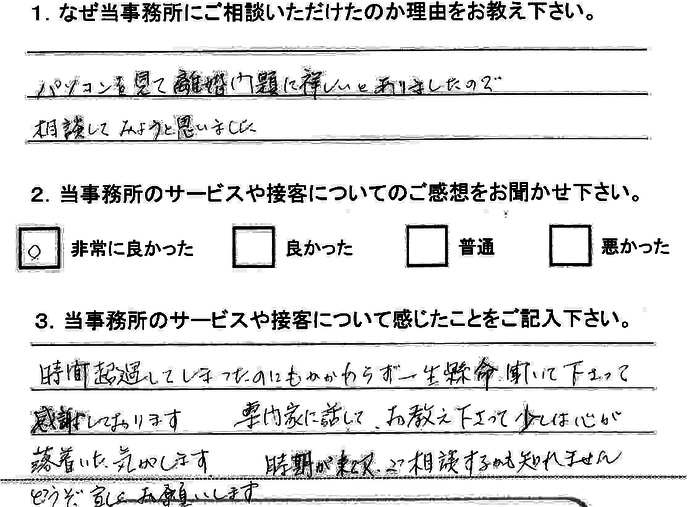 1．なぜ当事務所にご相談いただけたのか理由をお教え下さい。
パソコンを見て離婚問題に詳しいとありましたので
相談してみようと思いました
2．当事務所のサービスや接客についてのご感想をお聞かせ下さい。
○ 非常に良かった 良かった 普通 悪かった
3．当事務所のサービスや接客について感じたことをご記入下さい。
時間超過してしまったのにもかかわらず一生懸命聞いて下さって
感謝しております 専門家に話して、お教え下さって少しは心が
落着いた気がします 時期が来て、又相談するかも知れません
どうぞ宜しくお願いします